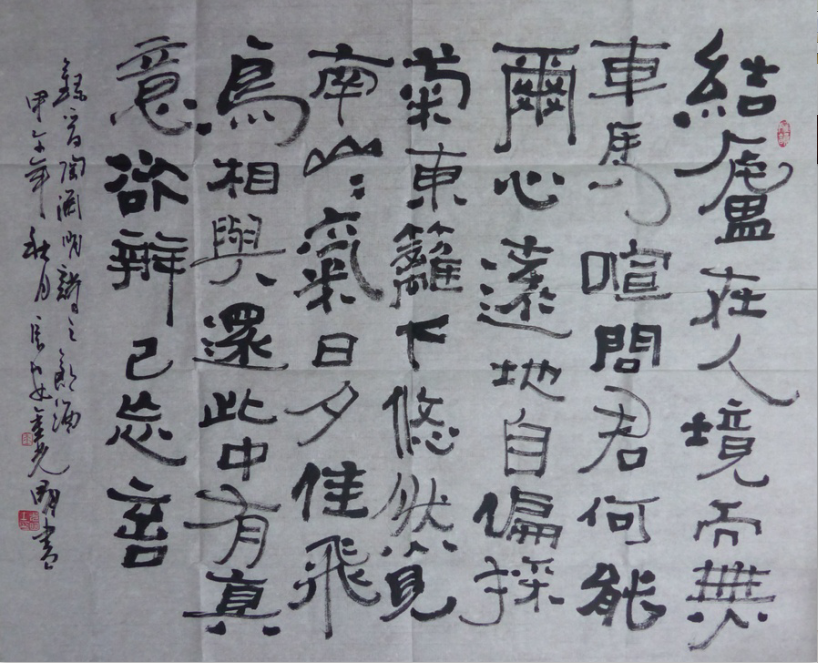 結廬在人境而無
車馬喧問君何能
爾心遠地自偏採
菊東籬下悠然覓
南山々氣日夕佳飛
鳥相與還此中有真
意欲辨已忘言
錄晉陶淵明詩之飲酒
甲午年秋月光明書